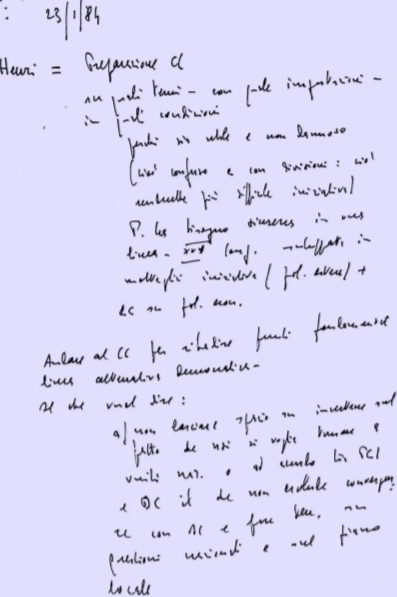 : 23/1/84
Henri = Preparazione CC
su quali temi - con quale impostazione -
in quali condizioni
perché sia utile e non dannoso
(cioè confuso e con divisioni: così
più difficile iniziativa)
P. ha bisogno in una
linea - XVI Cong. - sviluppata in
iniziative (pol. estera) +
CC su pol. econ.
Andare al CC per ribadire punti fondamentali
linea alternativa democratica -
il che vuol dire:
a) non lasciare spazio su incertezze sul
fatto che noi si voglia tornare a
unità naz. o ad accordo tra PCI
e DC il che non esclude convergen-
ze con DC e forze
questioni nazionali e sul piano
locale